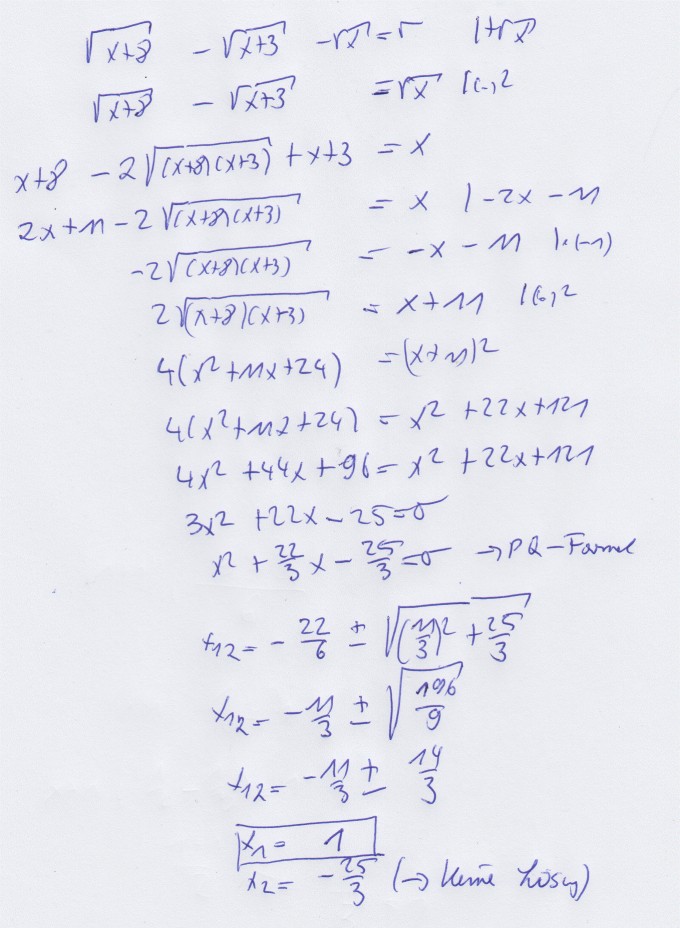 √(x+8) - √(x+3) - √x = 0 |+√x
√(x+8) - √(x+3) = √x |(..)²
x+8 - 2√((x+8)(x+3)) + x+3 = x
2x+11 - 2√((x+8)(x+3)) = x |-2x - 11
-2√((x+8)(x+3)) = -x - 11 |·(-1)
2√((x+8)(x+3)) = x+11 |(..)²
4(x²+11x+24) = (x+11)²
4(x²+11x+24) = x² +22x+121
4x² +44x+96 = x² +22x+121
3x² +22x - 25=0
x² + 22/3 x - 25/3 =0 → PQ-Formel
x12= - 22/6 ± √((11/3)² + 25/3)
x12= - 11/3 ± √(196/9)
x12= - 11/3 ± 14/3
x1= 1
x2= - 25/3 (→ keine Lösung)